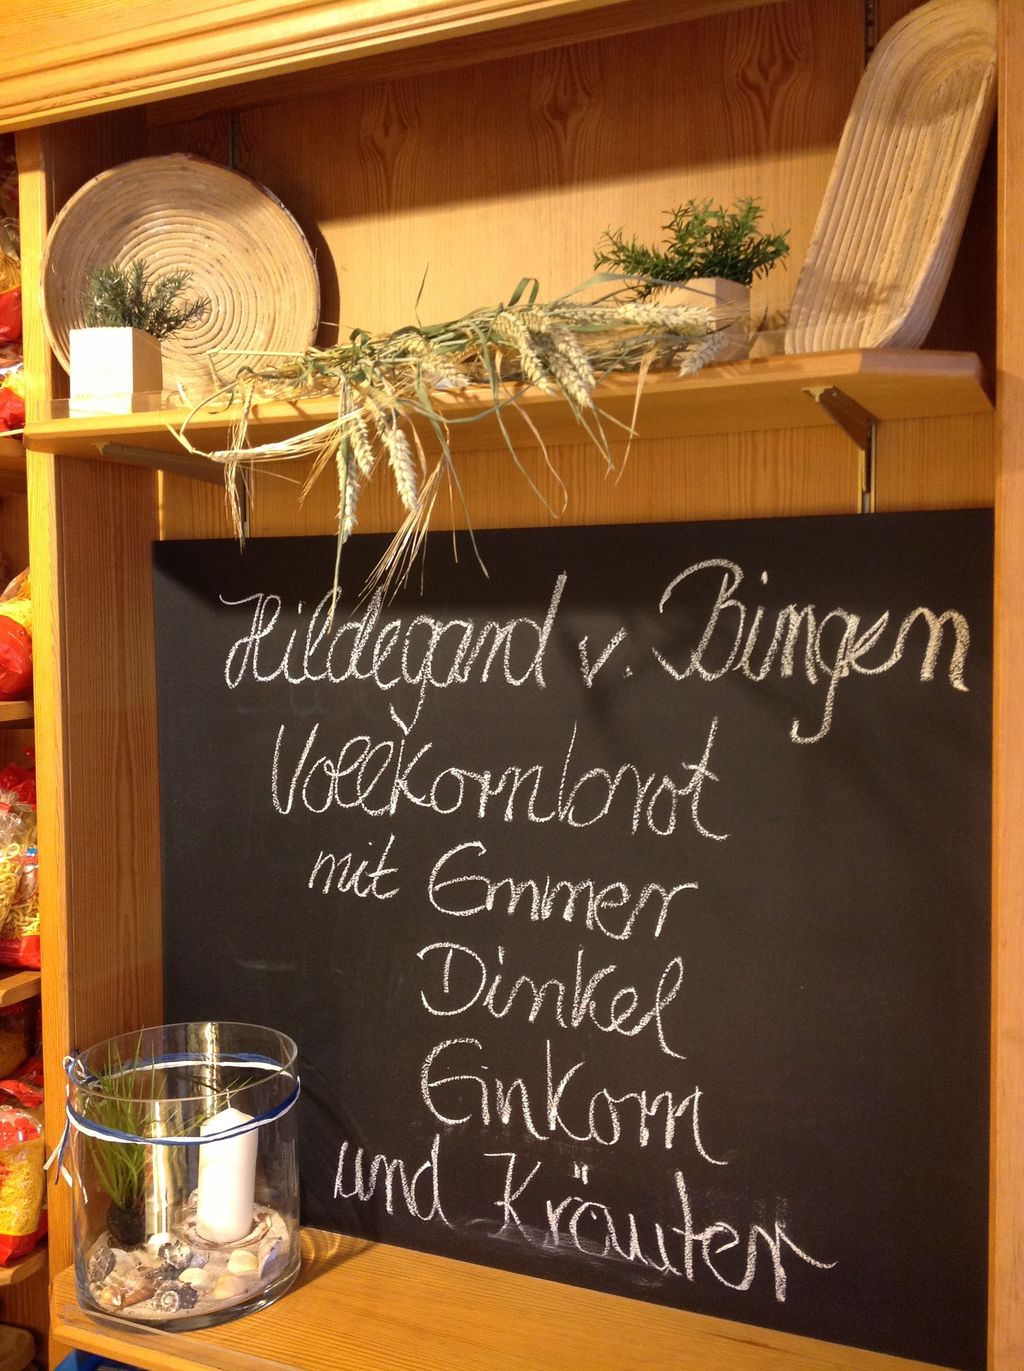 Hildegard v. Bingen
Vollkornbrot
mit Emmer
Dinkel
Einkorn
und Kräuter